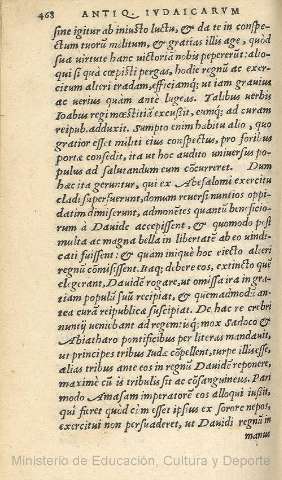 468 ANTIQ. IVDAICARVM
sine igitur ab iniusto luctu, & da te in conspe-
ctum tuorũ militum, & gratias illis age, quòd
sua virtute hanc victoria nobis pepererũt: alio-
qui si quà cœpisti pergas, hodie regnũ ac exer-
citum alteri tradam, efficiamq; ut iam grauius
ac verius quàm ante lugeas. Talibus verbis
Ioabus regi mœstitiã excussit, eumq; ad curam
reipub. adduxit. Sumpto enim habitu alio, quo
gratior esset militi eius conspectus, pro foribus
portæ consedit, ita ut hoc audito uniuersus po-
pulus ad salutandum eum cõcurreret. Dum
hæc ita geruntur, qui ex Abesalomi exercitu
cladi superfuerunt, domum reuersi nuntios oppi-
datim dimiserunt, admonẽtes quantũ beneficio-
rum à Dauide accepissent, & quomodo post
multa ac magna bella in libertatẽ ab eo uindi-
cati fuissent: & quam iniquè hoc eiecto alteri
regnũ cõmisissent. Itaq; debere eos, extincto quẽ
elegerant, Dauidẽ rogare, ut omissa ira in gra-
tiam populũ suũ recipiat, & quemadmodũ an-
tea curã reipublicæ suscipiat. De hac re crebri
nuntij ueniebant ad regem: isq; mox Sadoco &
Abiatharo pontificibus per literas mandauit,
ut principes tribus Iudæ cõpellent, turpe illis esse,
alias tribus ante eos in regnũ Dauidẽ reponere,
maxime cũ is tribulis sit ac cõsanguineus. Pari
modo Amasam imperatorẽ eos alloqui iussit,
qui fieret quòd cũm esset ipsius ex sorore nepos,
exercitui non persuaderet, ut Dauidi regnũ in
manus
Ministerio de Educación, Cultura y Deporte